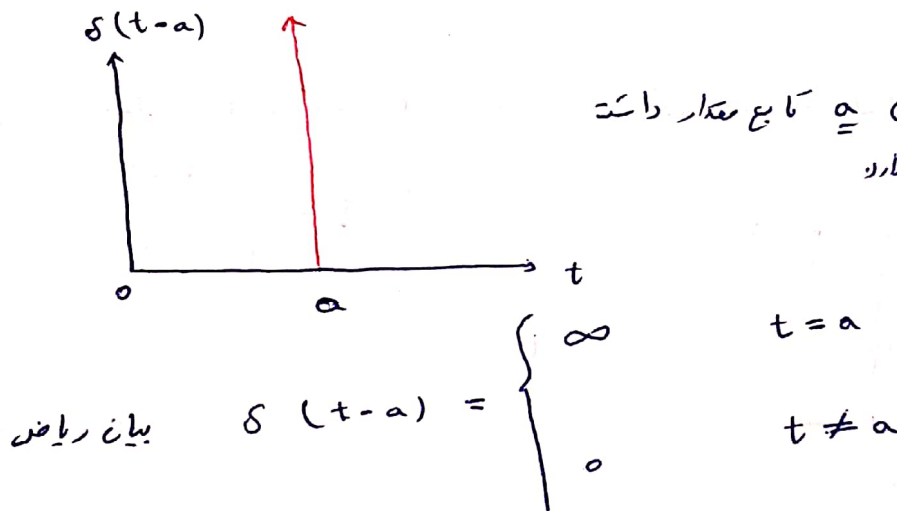 δ(t-a)
a تابع مقدار داشته
t
0
a
بیان ریاضی δ(t-a) = {
∞ t = a
0 t ≠ a